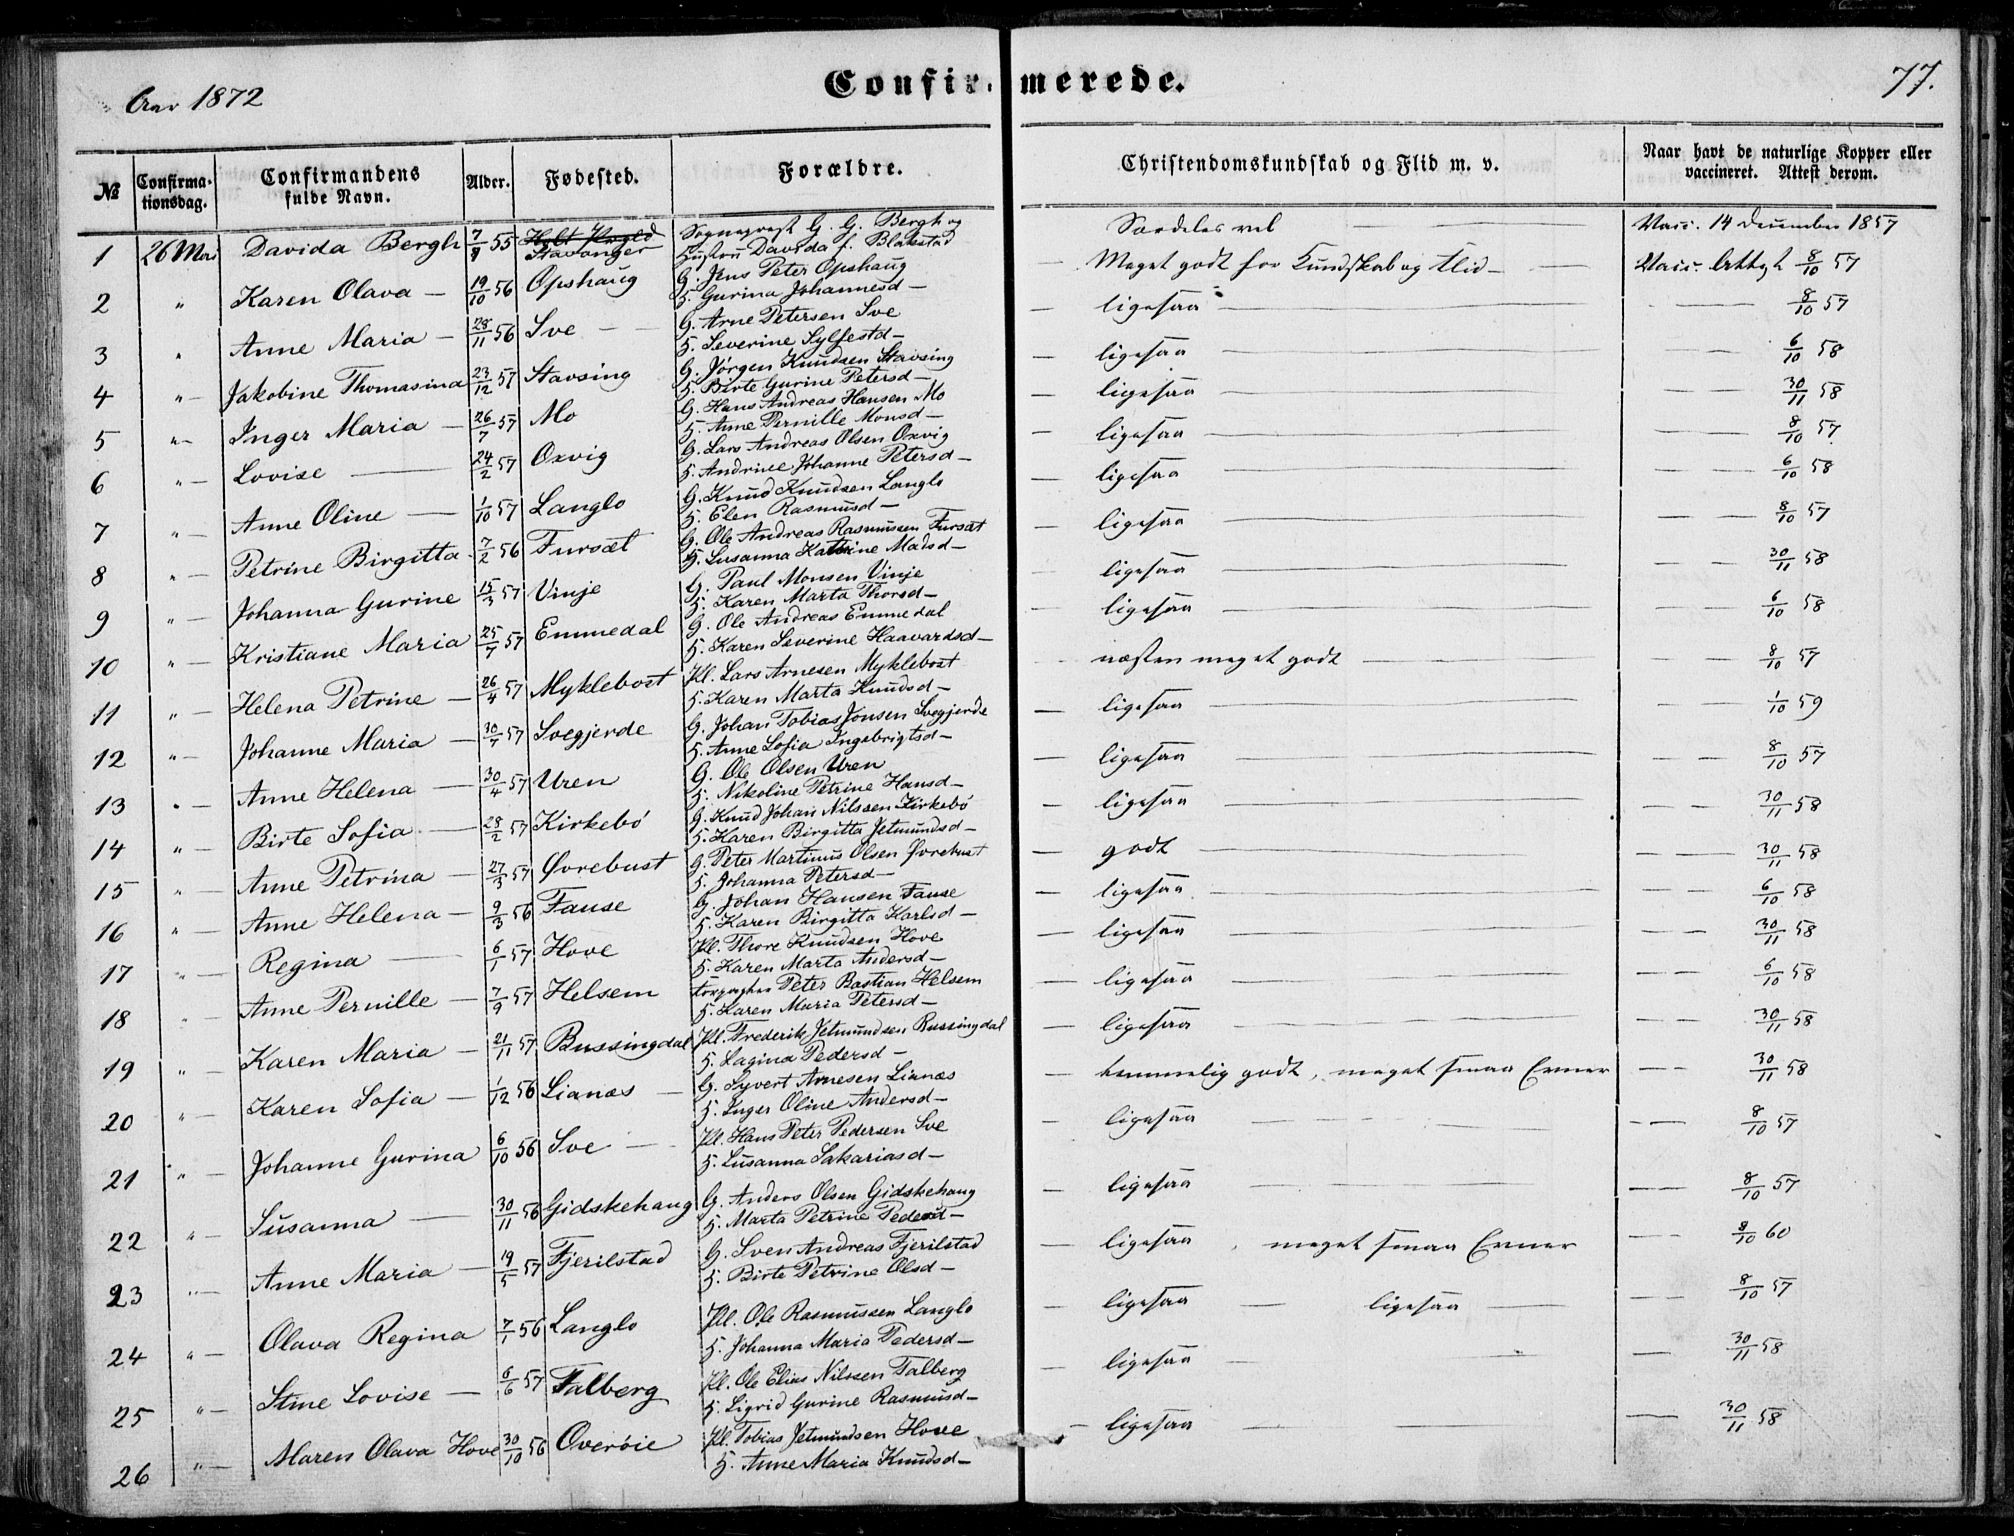 Aar 1872
Confirmerede.
77.
№
Confirmationsdag.
Confirmandens fulde Navn.
Alder.
Fødested.
Forældre.
Christendomskundskab og Flid m. v.
Naar havt de naturlige Kopper eller vaccineret. Attest derom.
1 26 Mai Davida Bergh 7/8 55 Stavanger Sognepræst G. G. Bergh og Hustru Davida f. Blakstad Særdeles vel Vacc. 14 December 1857
2 " Karen Olava — 19/10 56 Opshaug G. Jens Peter Opshaug H. Gurina Johannesd— Meget godt for Kundskab og Flid — Vacc. Attest 8/10 57
3 " Anne Maria — 28/11 56 Sve — G. Arne Petersen Sve H. Severine Sylfestd— ligesaa — 8/10 57
4 " Jakobine Thomasina 23/12 57 Stavsing G. Jørgen Knudsen Stavsing H. Birte Gurine Petersd— ligesaa — 6/10 58
5 " Inger Maria — 26/7 57 Mo G. Hans Andreas Hansen Mo H. Anne Pernille Monsd— ligesaa — 30/11 58
6 " Lovise — 24/2 57 Oxvig G. Lars Andreas Olsen Oxvig H. Andrine Johanne Petersd— ligesaa — 8/10 57
7 " Anne Oline — 1/10 57 Langlo G. Knud Knudsen Langlo H. Elen Rasmusd— ligesaa — 6/10 58
8 " Petrine Birgitta 7/2 56 Fursæt G. Ole Andreas Rasmussen Fursæt H. Susanna Katrine Madsd— ligesaa — 8/10 57
9 " Johanna Gurine 15/3 57 Vinje G. Paul Monsen Vinje H. Karen Marta Thorsd— ligesaa — 30/11 58
10 " Kristiane Maria 25/7 57 Emmedal G. Ole Andreas Emmedal H. Karen Severine Haavardsd— ligesaa — 6/10 58
11 " Helena Petrine — 26/4 57 Myklebost Pl. Lars Arnesen Myklebost H. Karen Marta Knudsd— næsten meget godt — 8/10 57
12 " Johanne Maria — 30/7 57 Svegjerde G. Johan Tobias Jonsen Svegjerde H. Anne Sofia Ingebrigtsd— ligesaa — 1/10 59
13 " Anne Helena — 30/4 57 Uren G. Ole Olsen Uren H. Nikoline Petrine Hansd— ligesaa — 8/10 57
14 " Birte Sofia — 28/2 57 Kirkebø G. Knud Johan Nilssen Kirkebø H. Karen Birgitta Jetmundsd— ligesaa — 30/11 58
15 " Anne Petrina — 27/3 57 Øvrebust G. Peter Martinus Olsen Øvrebust H. Johanna Petersd— godt — 30/11 58
16 " Anne Helena — 9/3 56 Fause G. Johan Hansen Fause H. Karen Birgitta Karlsd— ligesaa — 6/10 58
17 " Regina — 6/1 57 Hove Pl. Thore Knudsen Hove H. Karen Marta Andersd— ligesaa — 30/11 58
18 " Anne Pernille — 7/9 57 Helsem Peter Bastian Helsem H. Karen Maria Petersd— ligesaa — 6/10 58
19 " Karen Maria — 21/11 57 Bussingdal Pl. Frederik Jetmundsen Russingdal H. Lagina Pedersd— ligesaa — 30/11 58
20 " Karen Sofia — 1/12 56 Lianæs — G. Syvert Arnesen Lianæs H. Inger Oline Andersd— temmelig godt, meget smaa Evner — 30/11 58
21 " Johanne Gurina 6/10 56 Sve — Pl. Hans Peter Pedersen Sve H. Susanna Sakariasd— ligesaa — 8/10 57
22 " Susanna — 30/11 56 Gidskehaug G. Anders Olsen Gidskehaug H. Marta Petrine Pedersd— ligesaa — 8/10 57
23 " Anne Maria — 19/5 57 Fjerilstad G. Sven Andreas Fjerilstad H. Birte Petrine Olsd— ligesaa, meget smaa Evner — 8/10 60
24 " Olava Regina 7/1 56 Langlo Pl. Ole Rasmussen Langlo H. Johanna Maria Pedersd— ligesaa — ligesaa — 8/10 57
25 " Stine Lovise — 6/6 57 Falberg Pl. Ole Elias Nilssen Falberg H. Sigrid Gurine Rasmusd— ligesaa — 30/11 58
26 " Maren Olava Hove 30/10 56 Overøie Pl. Tobias Jetmundsen Hove H. Anne Maria Knudsd— ligesaa — 30/11 58